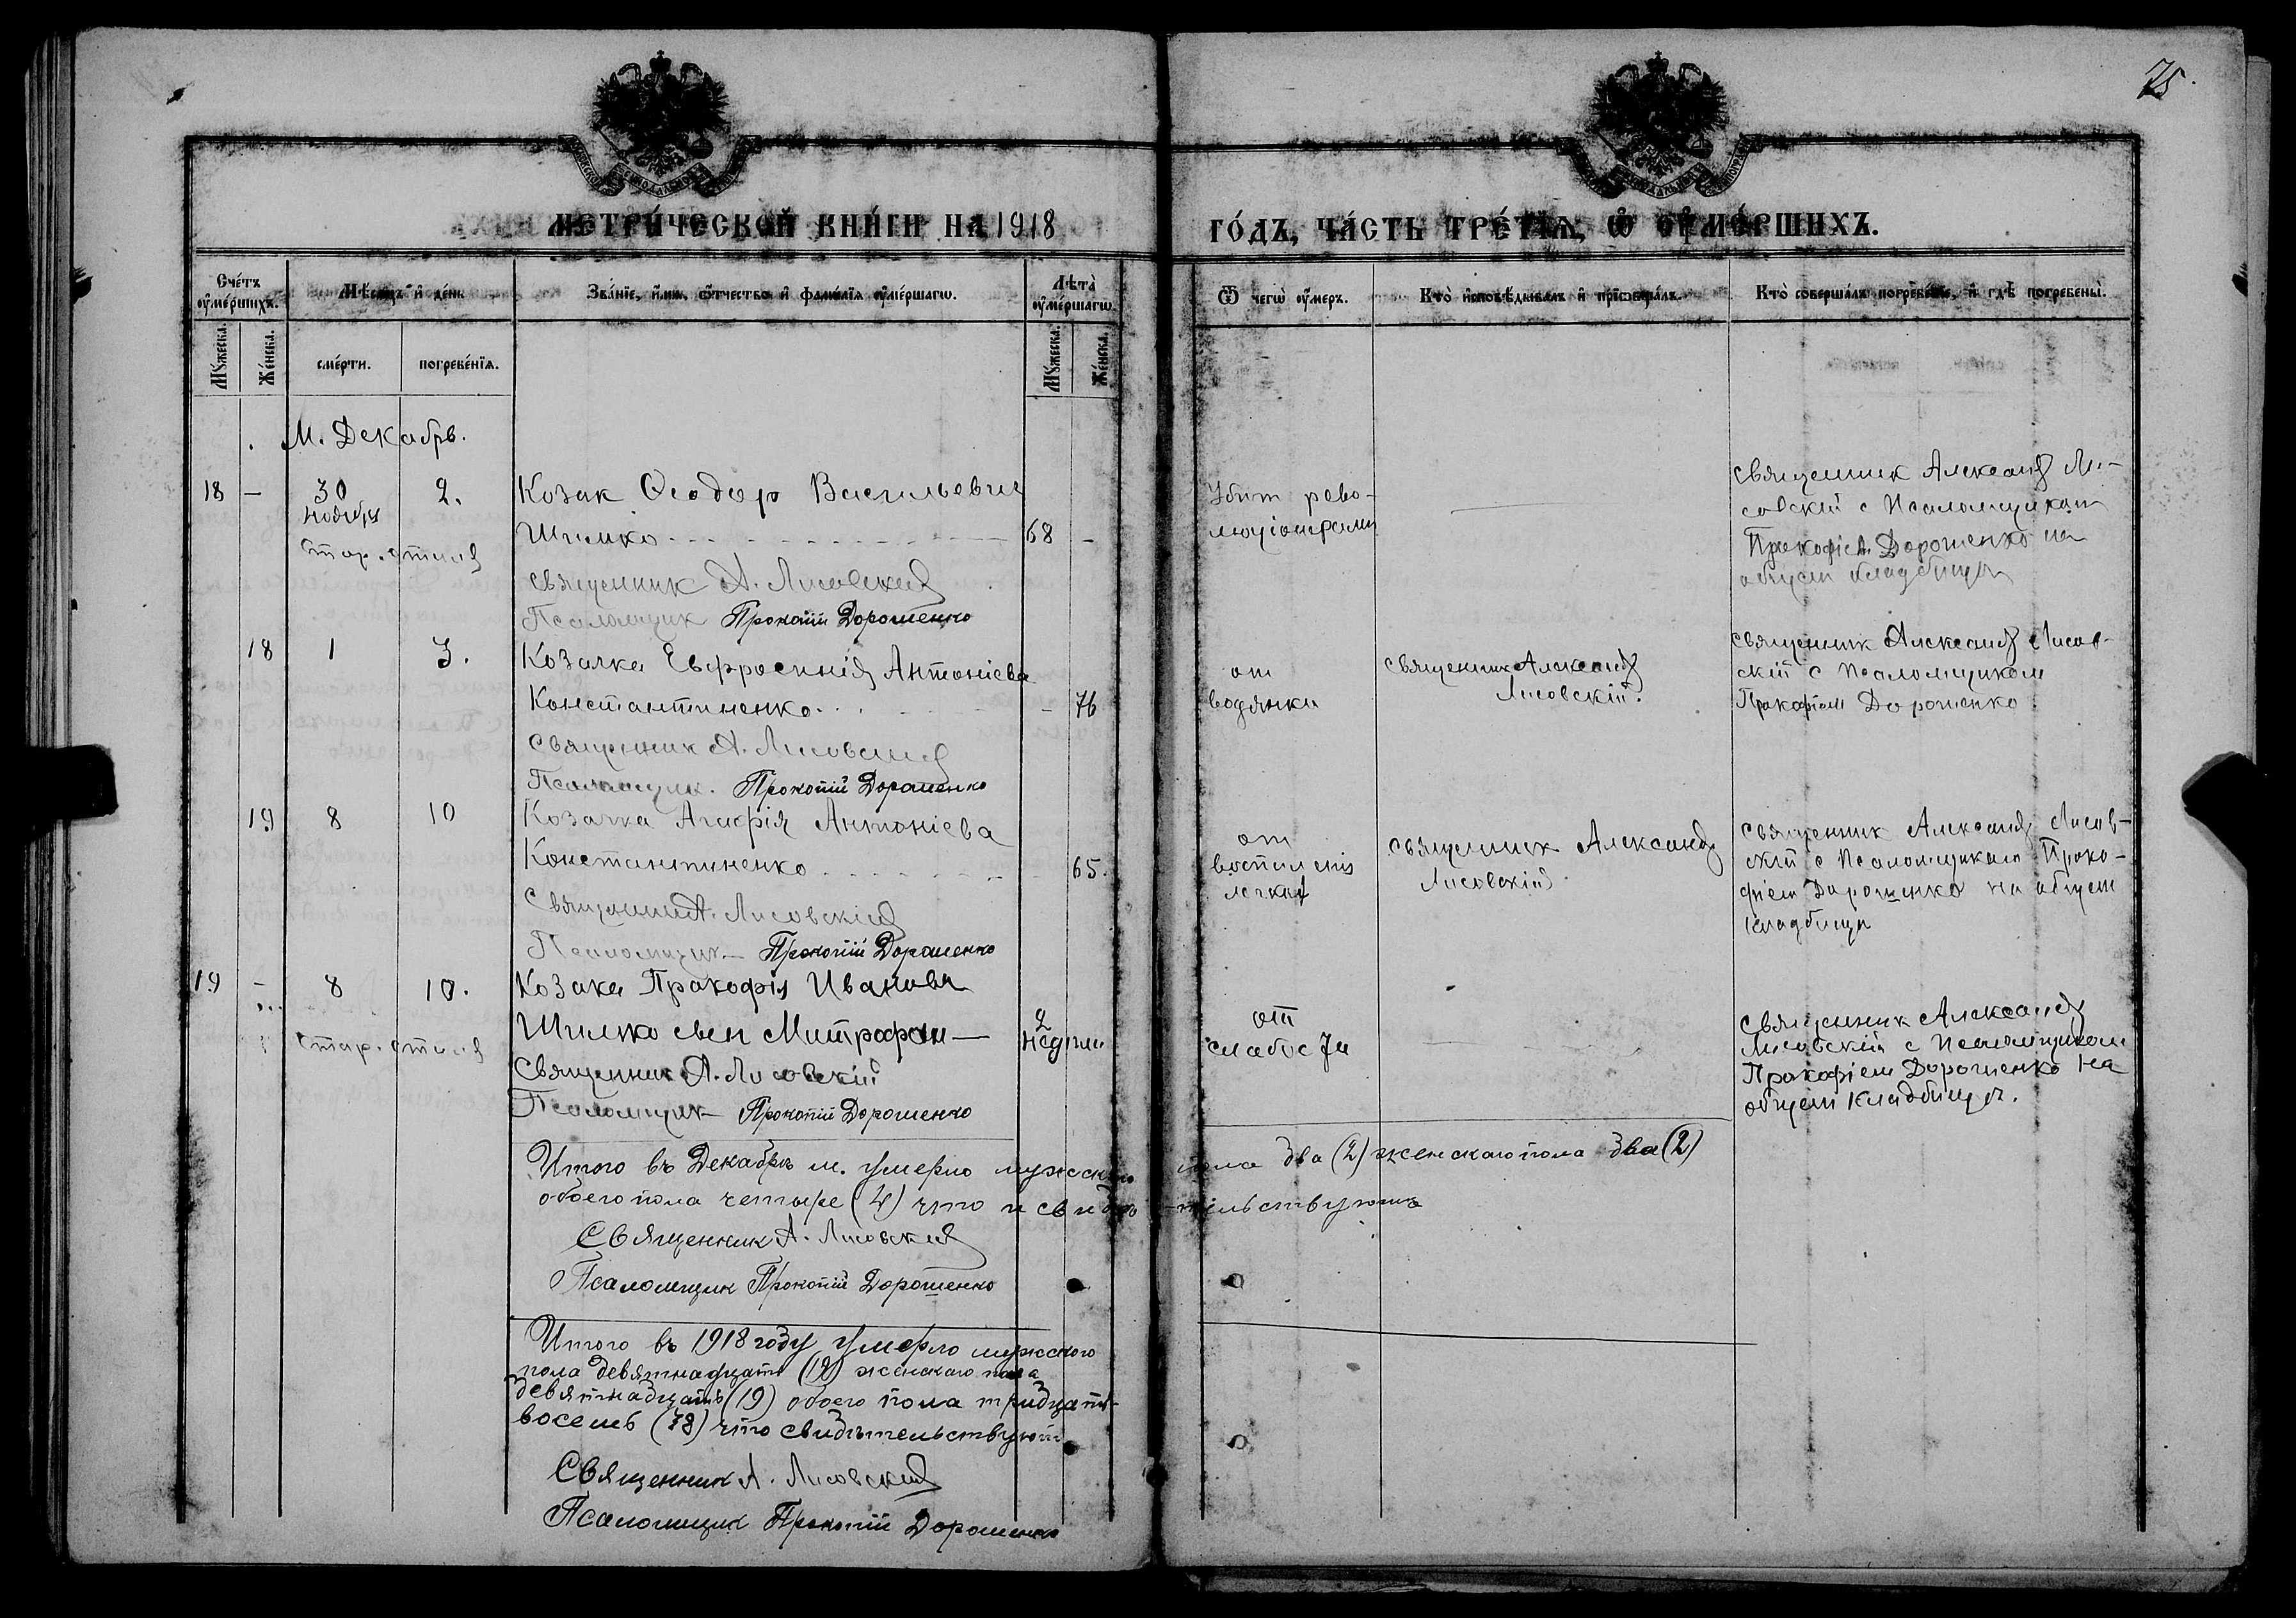 75.
МЕТРИ́ЧЕСКОЙ КНИ́ГИ НА 1918
ГО́ДЪ, ЧА́СТЬ ТРЕ́ТІѦ, Ѡ҆ ОУ҆МЕ́РШИХЪ.
Сче́тъ оу҆ме́ршихъ.
Мѣ́сяцъ и҆ де́нь
Зва́нїе, и҆́мѧ, ѻ҆́тчество и҆ фами́лїѧ оу҆ме́ршагѡ.
Лѣта̀ оу҆ме́ршагѡ
Ѿ чегѡ̀ оу҆́меръ.
Кто̀ и҆сповѣ́дывалъ и҆ прїѡбща́лъ.
Кто̀ соверша́лъ погребе́нїе, и҆ гдѣ̀ погребены̀.
Мꙋ́жеска.
Же́нска.
сме́рти.
погребе́нїѧ.
Мꙋ́жеска.
Же́нска.
М. Декабрь.
18 – 30 2. Козак Ѳеодор Васильевич
ноября
Шимко 68 –
стар. стиля
священник А. Лисовский
Псаломщик Прокопій Дорошенко
Убит рево-
люціонерами
священник Александ Ли-
совскій с Псаломщиком
Прокофіем Дорошенко на
общем кладбищѣ
18 1 3. Козачка Евфросинія Антоніева
Константиненко – 76
Священник А. Лисовский
Псаломщик. Прокопій Дорошенко
от
водянки
священник Александ
Лисовскій.
священник Александ Лисов-
скій с Псаломщиком
Прокофіем Дорошенко
19 8 10 Козачка Агафія Антоніева
Константиненко 65.
Священник А. Лисовскій
Псаломщик Прокопій Дорошенко
от
воспаленія
легких
священник Александ
Лисовскій
священник Александ Лисов-
скій с Псаломщиком Проко-
фіем Дорошенко на общем
кладбищѣ
19 – 8 10. Козака Прокофія Иванова
Шимко сын Митрофан— 2
недѣли
стар. стиля
Священник А. Лисовскій
Псаломщик Прокопій Дорошенко
от
слабости
Священник Александ
Лисовскій с Псаломщиком
Прокофіем Дорошенко на
общем кладбищѣ.
Итого въ Декабрѣ м. умерло мужского пола два (2) женскаго пола два (2)
обоего пола четыре (4) что и свидѣтельствуютъ
Священник А. Лисовский
Псаломщик Прокопій Дорошенко
Итого въ 1918 году умерло мужского
пола девятнадцать (19) женскаго пола
девятнадцать (19) обоего пола тридцать-
восемь (38) что свидѣтельствуют
Священник А. Лисовский
Псаломщик Прокопій Дорошенко